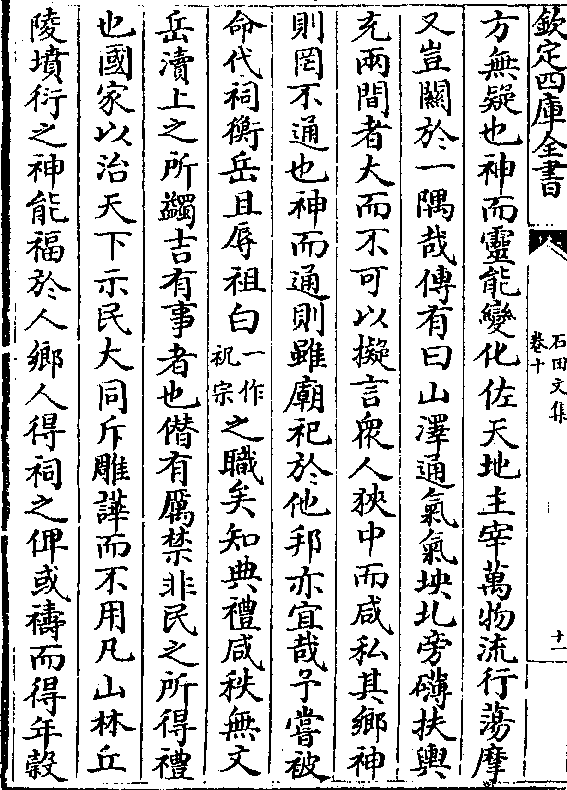 欽定四庫全書
石田文集
卷十
十一
方無疑也神而靈能變化佐天地主宰萬物流行蕩摩
又豈關於一隅哉傳有曰山澤通氣氣坱圠旁礴扶輿
充兩間者大而不可以擬言衆人狹中而咸私其鄉神
則罔不通也神而通則雖廟祀於他邦亦宜哉予嘗被
命代祠衡岳且辱祖白一作祝宗之職矣知典禮咸秩無文
岳瀆上之所蠲吉有事者也僭有厲禁非民之所得禮
也國家以治天下示民大同斥雕譁而不用凡山林丘
陵墳衍之神能福於人鄉人得祠之俾或禱而得年穀